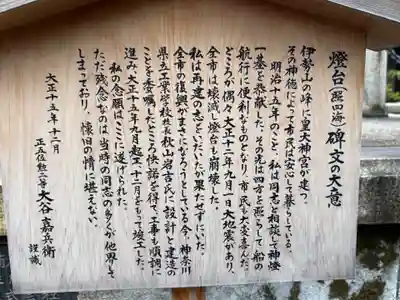 燈台(照四海)碑文の大意
伊勢山の峰に皇大神宮が建つ。
その神徳によって市民は安心して暮らしている。
明治十五年のこと、私は同志と相談して神燈
一基を恭献した。その光は四方を照らして船の
航行に便利なものとなり、市民も大変喜んだ。
ところが偶々、大正十二年九月一日大地震があり、
全市は壊滅し燈台も崩壊した。
私は再建の志をいだいたが果たせずにいた。
全市の復興がまさになろうとしている今、神奈川
県立工業学校校長秋山岩吉氏に設計と建造の
ことを委嘱したところ快諾を得て、工事も順調に
進み、大正十五年九月起工、十二月をもって竣工した。
私の念願はここに遂げられた。
ただ残念なのは当時の同志の多くが他界して
しまっており、懐旧の情に堪えない。
大正十五年十二月
正五位勲三等 大谷嘉兵衛
謹識